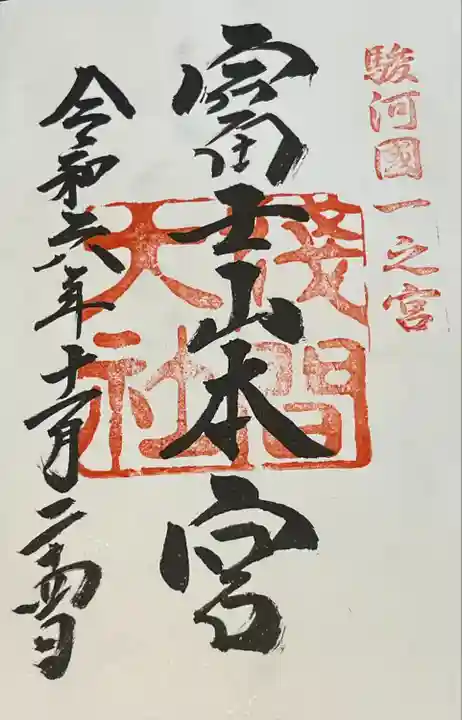 駿河國一之宮
富士山本宮
淺間
大社
令和六年十一月二十四日